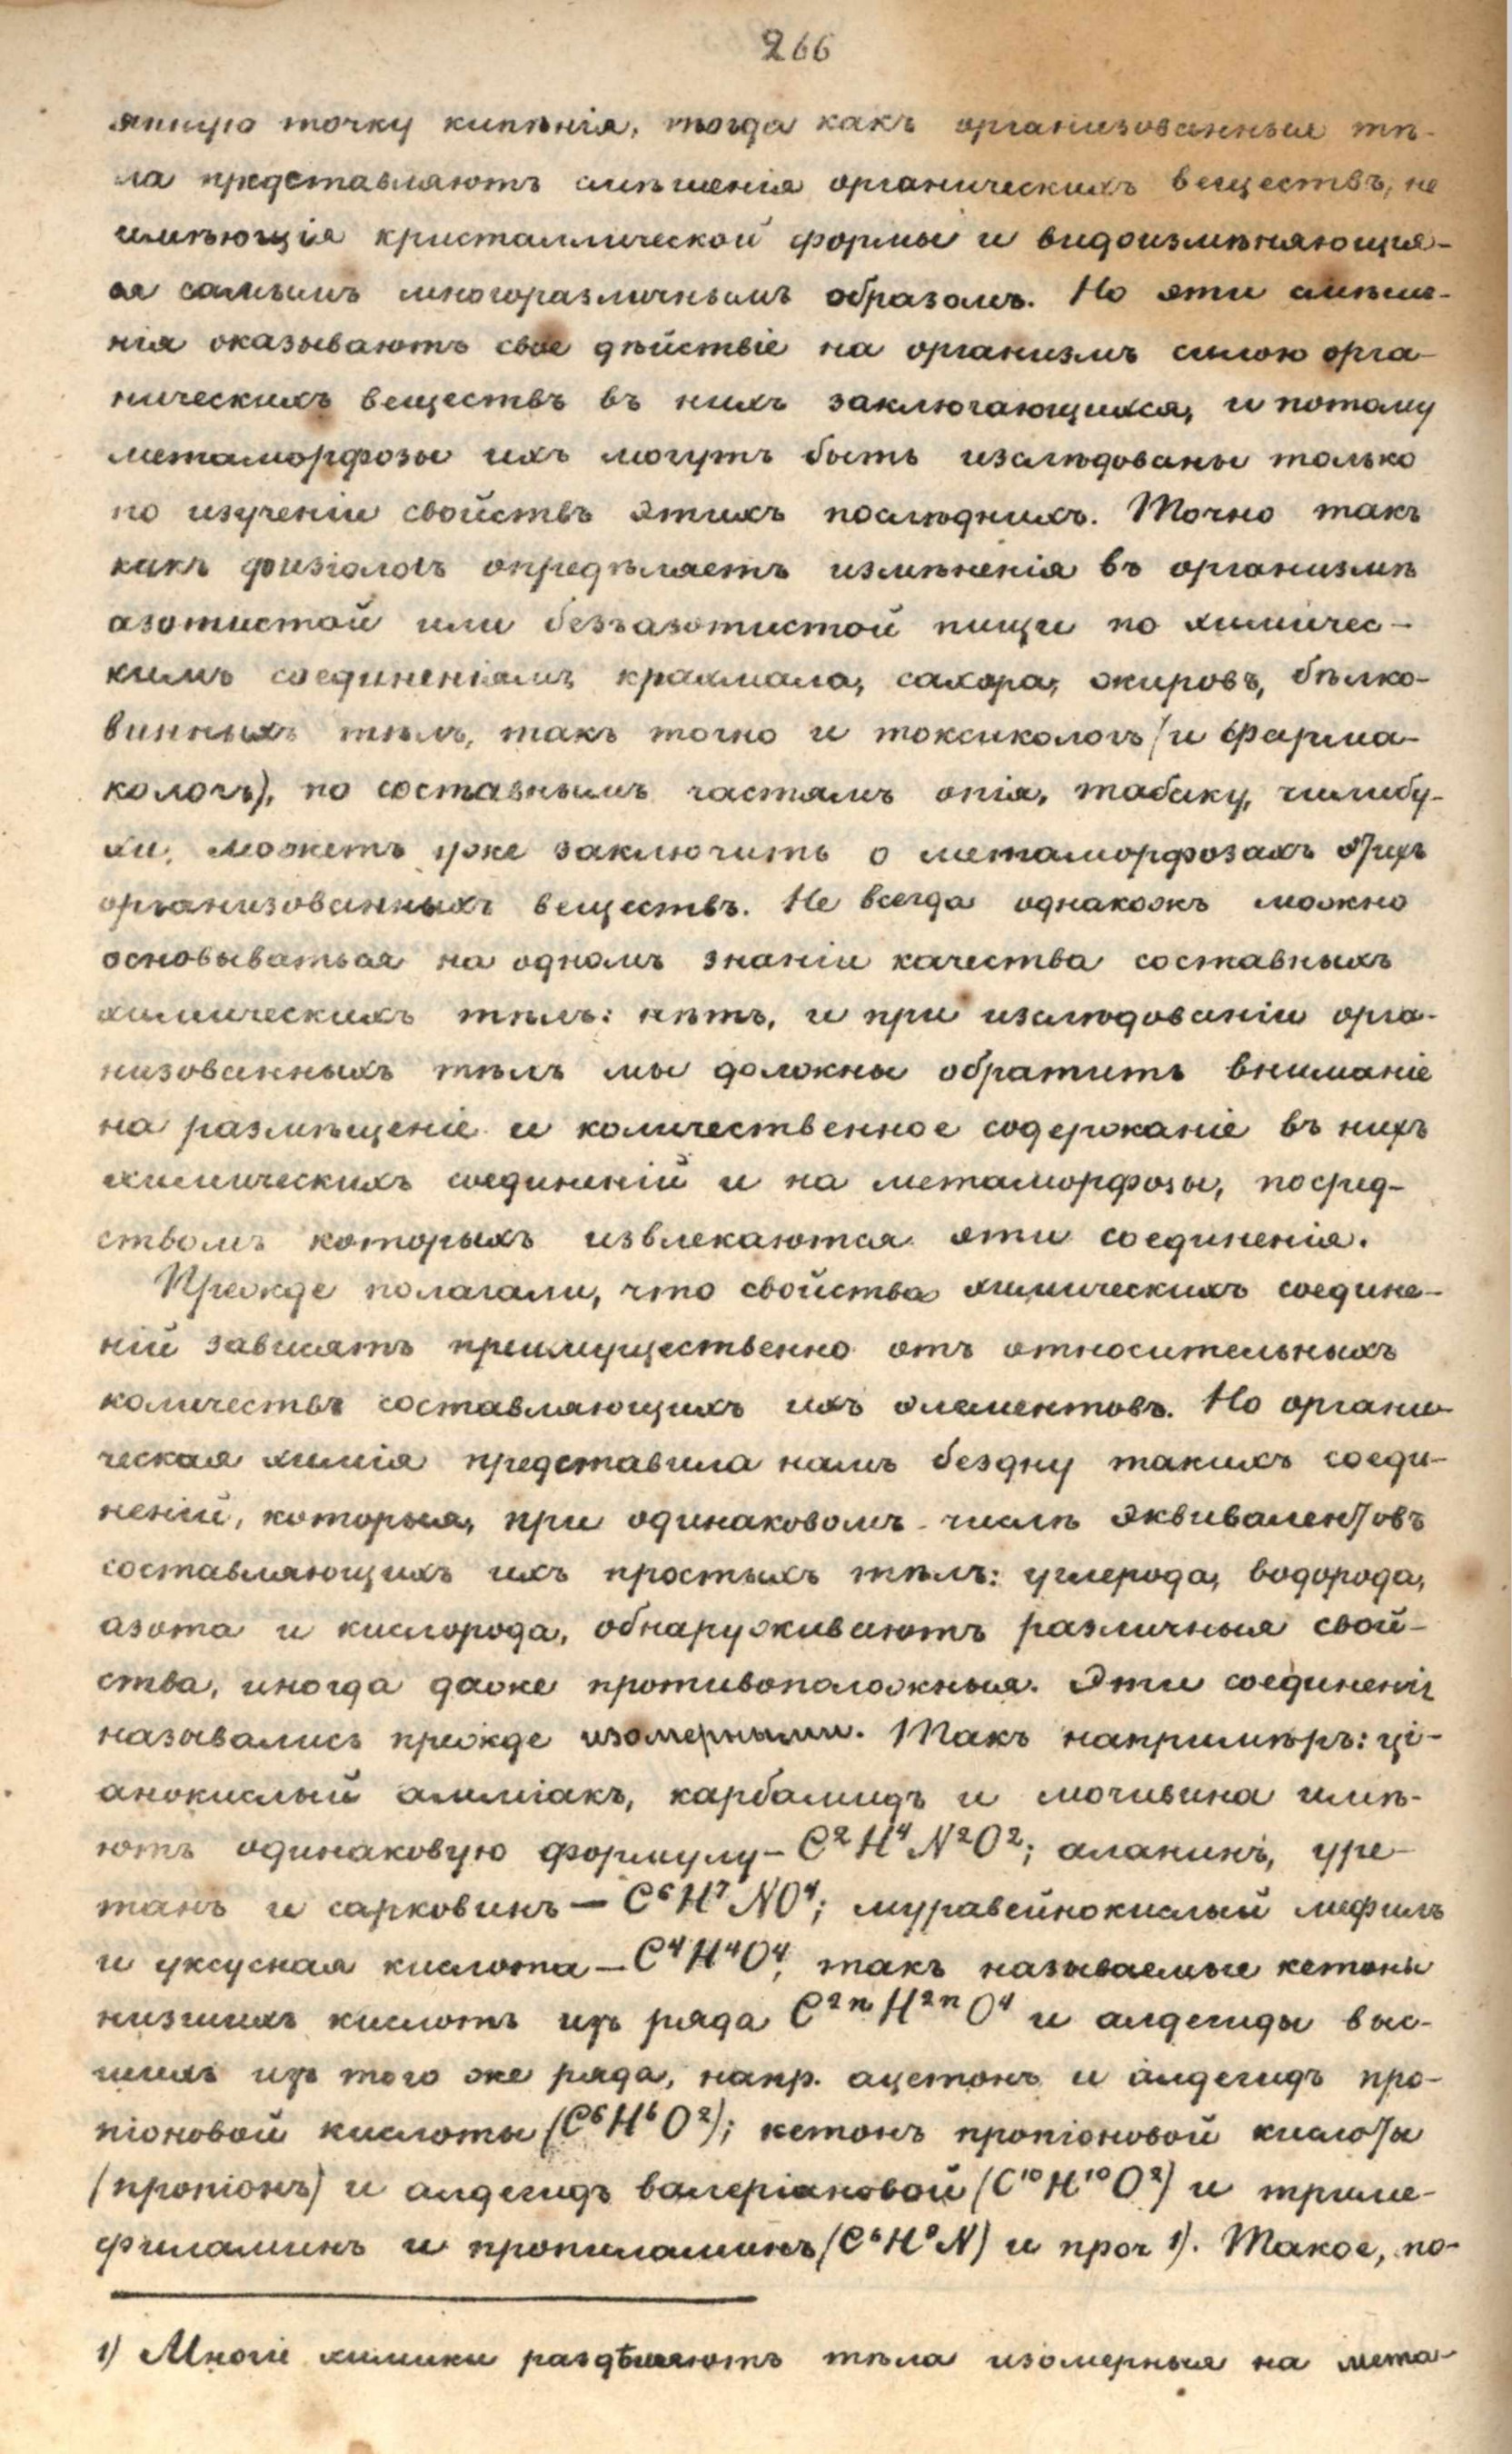 266
янную точку кипѣнія, тогда какъ организованныя тѣ-
ла представляютъ смѣшенія органическихъ веществъ, не
имѣющія кристаллической формы и видоизмѣняющія-
ся самымъ многоразличнымъ образомъ. Но эти смѣше-
нія оказываютъ свое дѣйствіе на организмъ силою орга-
ническихъ веществъ въ нихъ заключающихся, и потому
метаморфозы ихъ могутъ быть изслѣдованы только
по изученіи свойствъ этихъ послѣднихъ. Точно такъ
какъ физіологъ опредѣляетъ измѣненія въ организмѣ
азотистой или безъазотистой пищи по химичес-
кимъ соединеніямъ крахмала, сахара, жировъ, бѣлко-
винныхъ тѣлъ, такъ точно и токсикологъ (и фарма-
кологъ), по составнымъ частямъ опія, табаку, чилибу-
хи, можетъ уже заключить о метаморфозахъ этихъ
организованныхъ веществъ. Не всегда однакожъ можно
основываться на одномъ знаніи качества составныхъ
химическихъ тѣлъ: нѣтъ, и при изслѣдованіи орга-
низованныхъ тѣлъ мы должны обратить вниманіе
на размѣщеніе и количественное содержаніе въ нихъ
химическихъ соединеній и на метаморфозы, посред-
ствомъ которыхъ извлекаются эти соединенія.
Прежде полагали, что свойства химическихъ соедине-
ній зависятъ преимущественно отъ относительныхъ
количествъ составляющихъ ихъ элементовъ. Но органи-
ческая химія представила намъ бездну такихъ соеди-
неній, которыя, при одинаковомъ числѣ эквивалентовъ
составляющихъ ихъ простыхъ тѣлъ: углерода, водорода,
азота и кислорода, обнаруживаютъ различныя свой-
ства, иногда даже противоположныя. Эти соединенія
назывались прежде изомерными. Такъ напримѣръ: ці-
анокислый амміакъ, карбамидъ и мочивина имѣ-
ютъ одинаковую формулу – C²H⁴N²O²; аланинъ, уре-
танъ и сарковинъ – C⁶H⁷NO⁴; муравейнокислый мефилъ
и уксусная кислота – C⁴H⁴O⁴, такъ называемые кетоны
низшихъ кислотъ изъ ряда C²ⁿH²ⁿO⁴ и алдегиды выс-
шихъ изъ того же ряда, напр. ацетонъ и алдегидъ про-
піоновой кислоты (C⁶H⁶O²); кетонъ пропіоновой кислоты
(пропіонъ) и алдегидъ валеріановой (C¹⁰H¹⁰O²) и триме-
филаминъ и пропиламинъ (C⁶H⁹N) и проч 1). Такое, по-
1) Многіе химики раздѣляютъ тѣла изомерныя на мета-